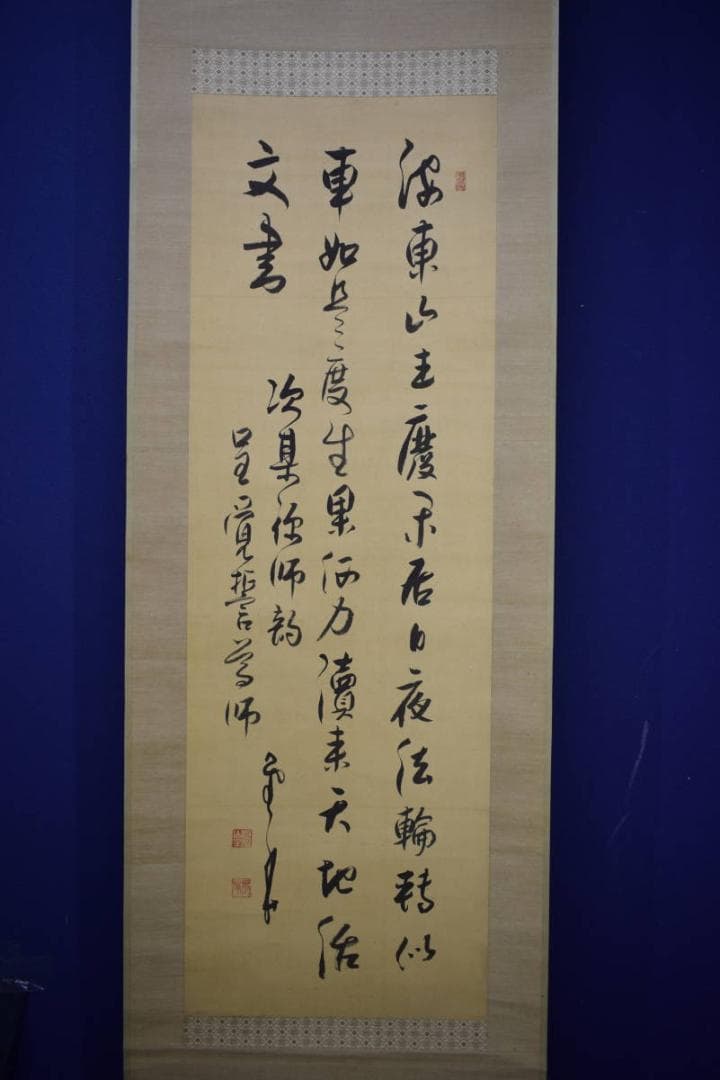 東山主閑居日夜法輪轉似
車如是度生果何力讀來天地活
文書
次某禪師韻
呈覺誓尊師